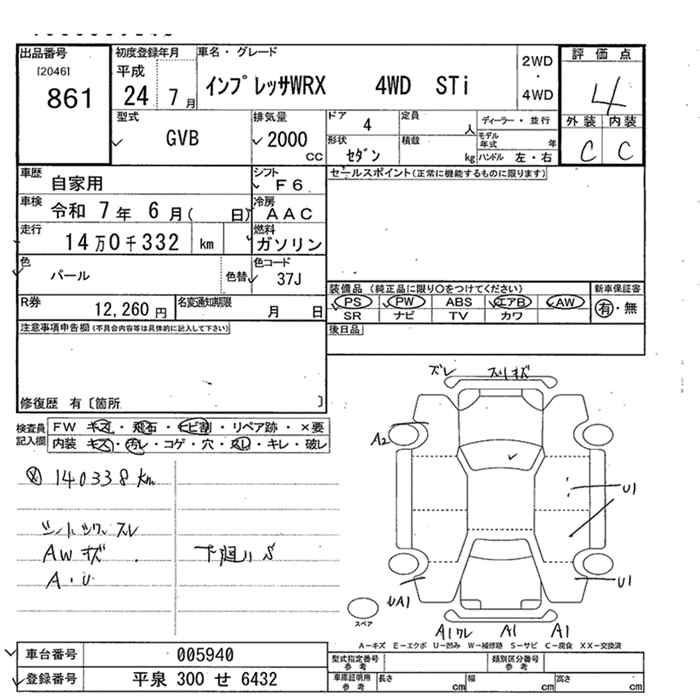 出品番号
[2046]
861
初度登録年月
平成
24 7 月
車名・グレード
インプレッサWRX 4WD STi
2WD
・
4WD
評価点
4
外装 内装
C C
型式
GVB
排気量
2000 CC
ドア 4
定員 人
ディーラー・並行
モデル年式 年
形状 セダン
積載 kg
ハンドル 左・右
車歴 自家用
シフト F6
車検 令和 7 年 6 月( 日)
冷房 AAC
走行 14万0千332 km
燃料 ガソリン
色 パール 色替
色コード 37J
R券 12,260 円
名変通知期限 月 日
セールスポイント(正常に機能するものに限ります)
装備品(純正品に限り○をつけてください)
新車保証書
PS PW ABS エアB AW
SR ナビ TV カワ
有・無
後日品
注意事項申告欄(不具合内容等は具体的に記入して下さい)
修復歴 有〔箇所 〕
検査員記入欄
FW キズ・飛石・ヒビ割・リペア跡・×要
内装 キズ・汚レ・コゲ・穴・スレ・キレ・破レ
140338km
シートシワ、スレ
AWキズ
A・U
下廻りS
ズレ スリキズ
A2
U1
U1
UA1
A1ワレ A1 A1
スペア
A-キズ E-エクボ U-凹み W-補修跡 S-サビ C-腐食 XX-交換済
車台番号 005940
登録番号 平泉 300 せ 6432
型式指定番号 参考
類別区分番号 参考
車庫証明用 参考 長さ cm 幅 cm 高さ cm